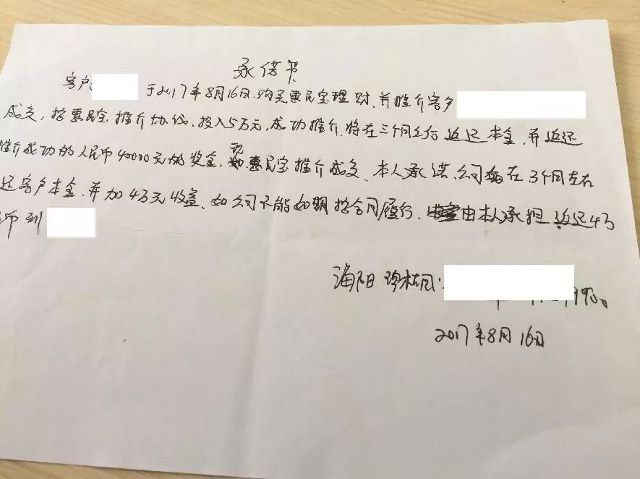 承诺书
客户 于2017年8月16日购买惠民宝理财,并推介客户
成交,按惠民宝推介协议,投入5万元,成功推介,将在三个月左右返还本金,并返还
推介成功的人民币40000元的奖金,惠民宝推介成交,本人承诺,公司在3个月左右
还客户本金,并加4万元收益,如公司不能如期按合同履行,由本人承担返还4万
币到
2017年8月16日